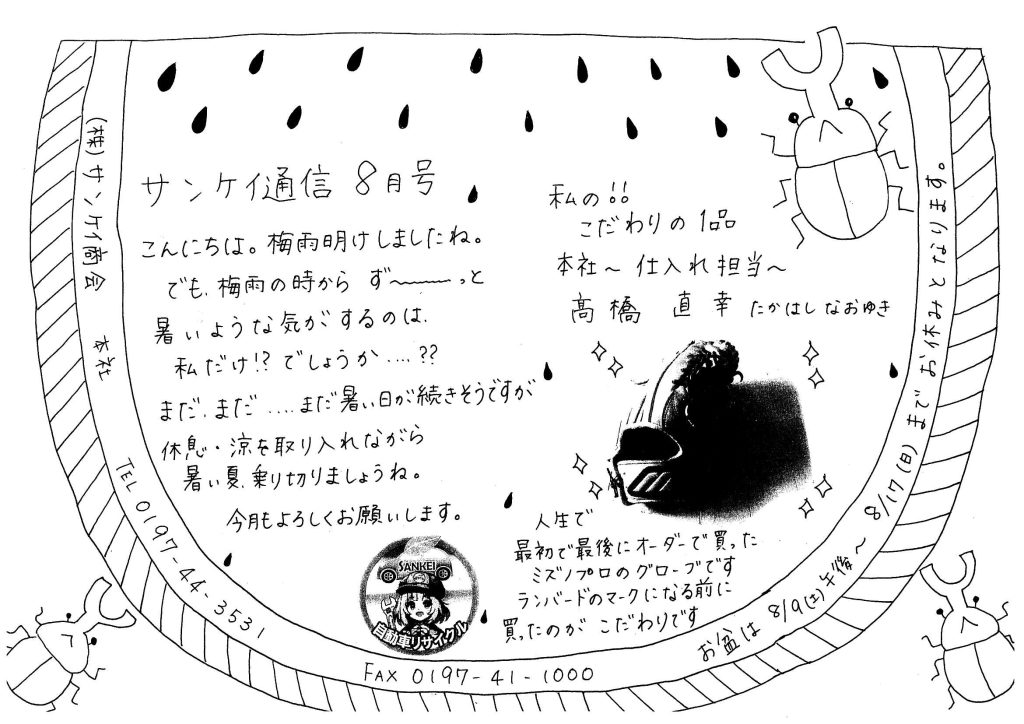 サンケイ通信 8月号
こんにちは。梅雨明けしましたね。
でも、梅雨の時から ず〜〜〜っと
暑いような気がするのは、
私だけ!?でしょうか....??
まだ、まだ....まだ暑い日が続きそうですが
休息・涼を取り入れながら
暑い夏、乗り切りましょうね。
今月もよろしくお願いします。
私の!!
こだわりの1品
本社〜 仕入れ担当〜
髙橋 直幸 たかはしなおゆき
人生で
最初で最後にオーダーで買った
ミズノプロのグローブです
ランバードのマークになる前に
買ったのが こだわりです
SANKEI
自動車リサイクル
(株)サンケイ商会 本社
TEL 0197-44-3531
FAX 0197-41-1000
お盆は 8/9(土)午後〜 8/17(日)までお休みとなります。